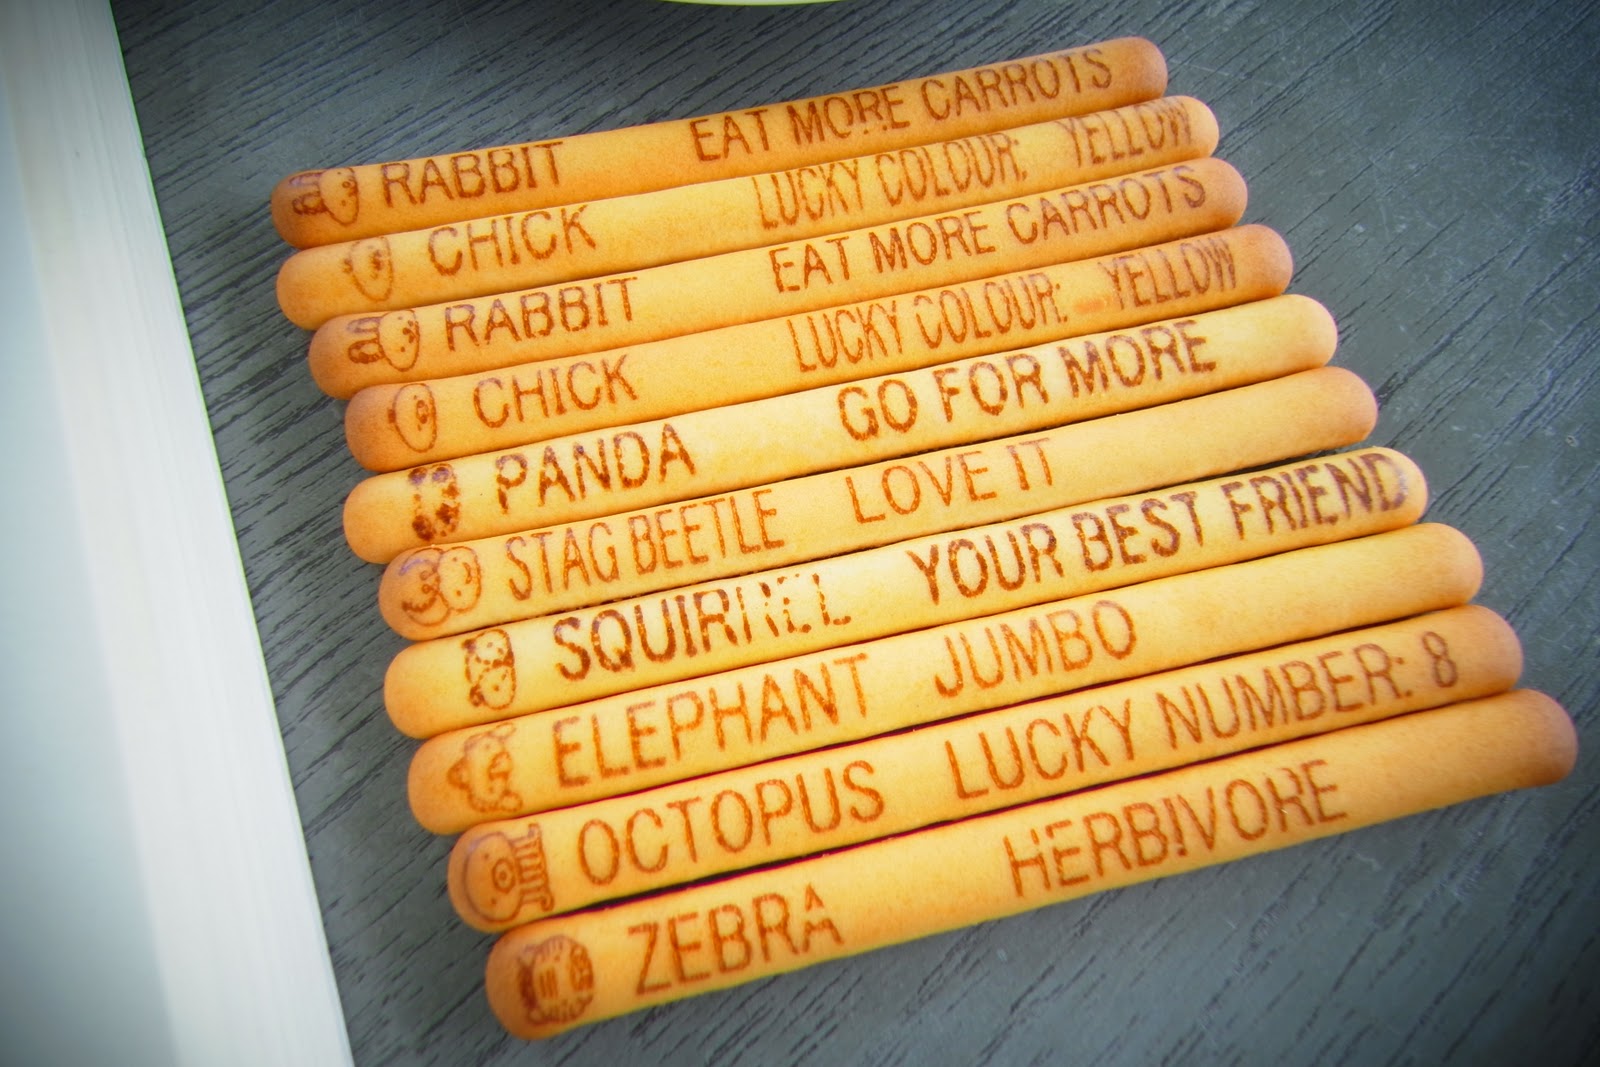 RABBIT EAT MORE CARROTS
CHICK LUCKY COLOUR: YELLOW
RABBIT EAT MORE CARROTS
CHICK LUCKY COLOUR: YELLOW
PANDA GO FOR MORE
STAG BEETLE LOVE IT
SQUIRREL YOUR BEST FRIEND
ELEPHANT JUMBO
OCTOPUS LUCKY NUMBER: 8
ZEBRA HERBIVORE